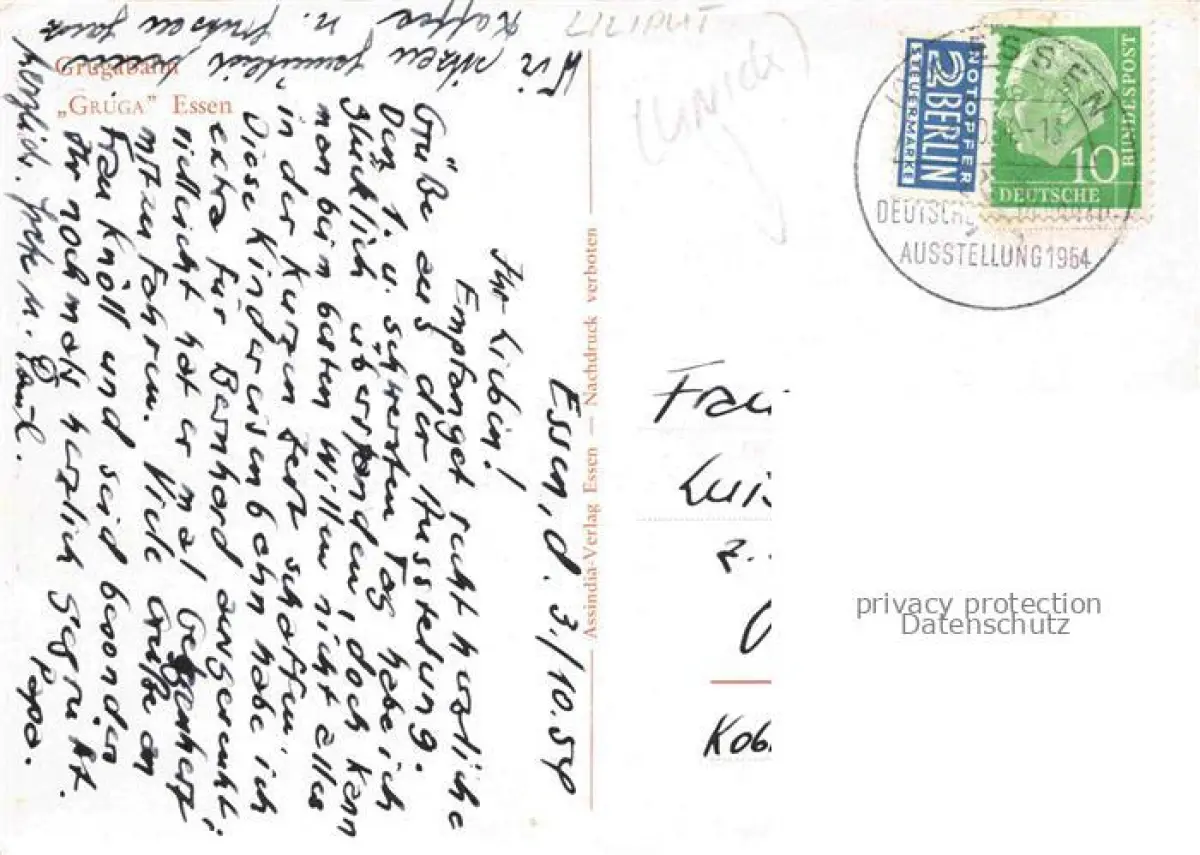 Grugabahn
„GRUGA” Essen
Essen, d. 3./10.54
Ihr Lieben!
Empfanget recht herzliche
Grüße aus der Ausstellung.
Den 1. u. schwersten Tag habe ich
glücklich überstanden, doch kann
man beim besten Willen nicht alles
in der kurzen Zeit schaffen.
Diese Kindereisenbahn habe ich
extra für Bernhard ausgesucht.
vielleicht hat er mal Gelegenheit
mitzufahren. Viele Grüße an
Frau Knöll und seid besonders
Ihr nochmals herzlich gegrüßt.
Papa.
Wir sitzen gemütlich
Kaffee u.
herzlich. u. Paul.
Assindia-Verlag Essen — Nachdruck verboten
LILIPUT
NOTOPFER
2 BERLIN
STEUERMARKE
DEUTSCHE
BUNDESPOST
10
ESSEN
DEUTSCHE
AUSSTELLUNG 1954
Frau
Z.
Kob
privacy protection
Datenschutz